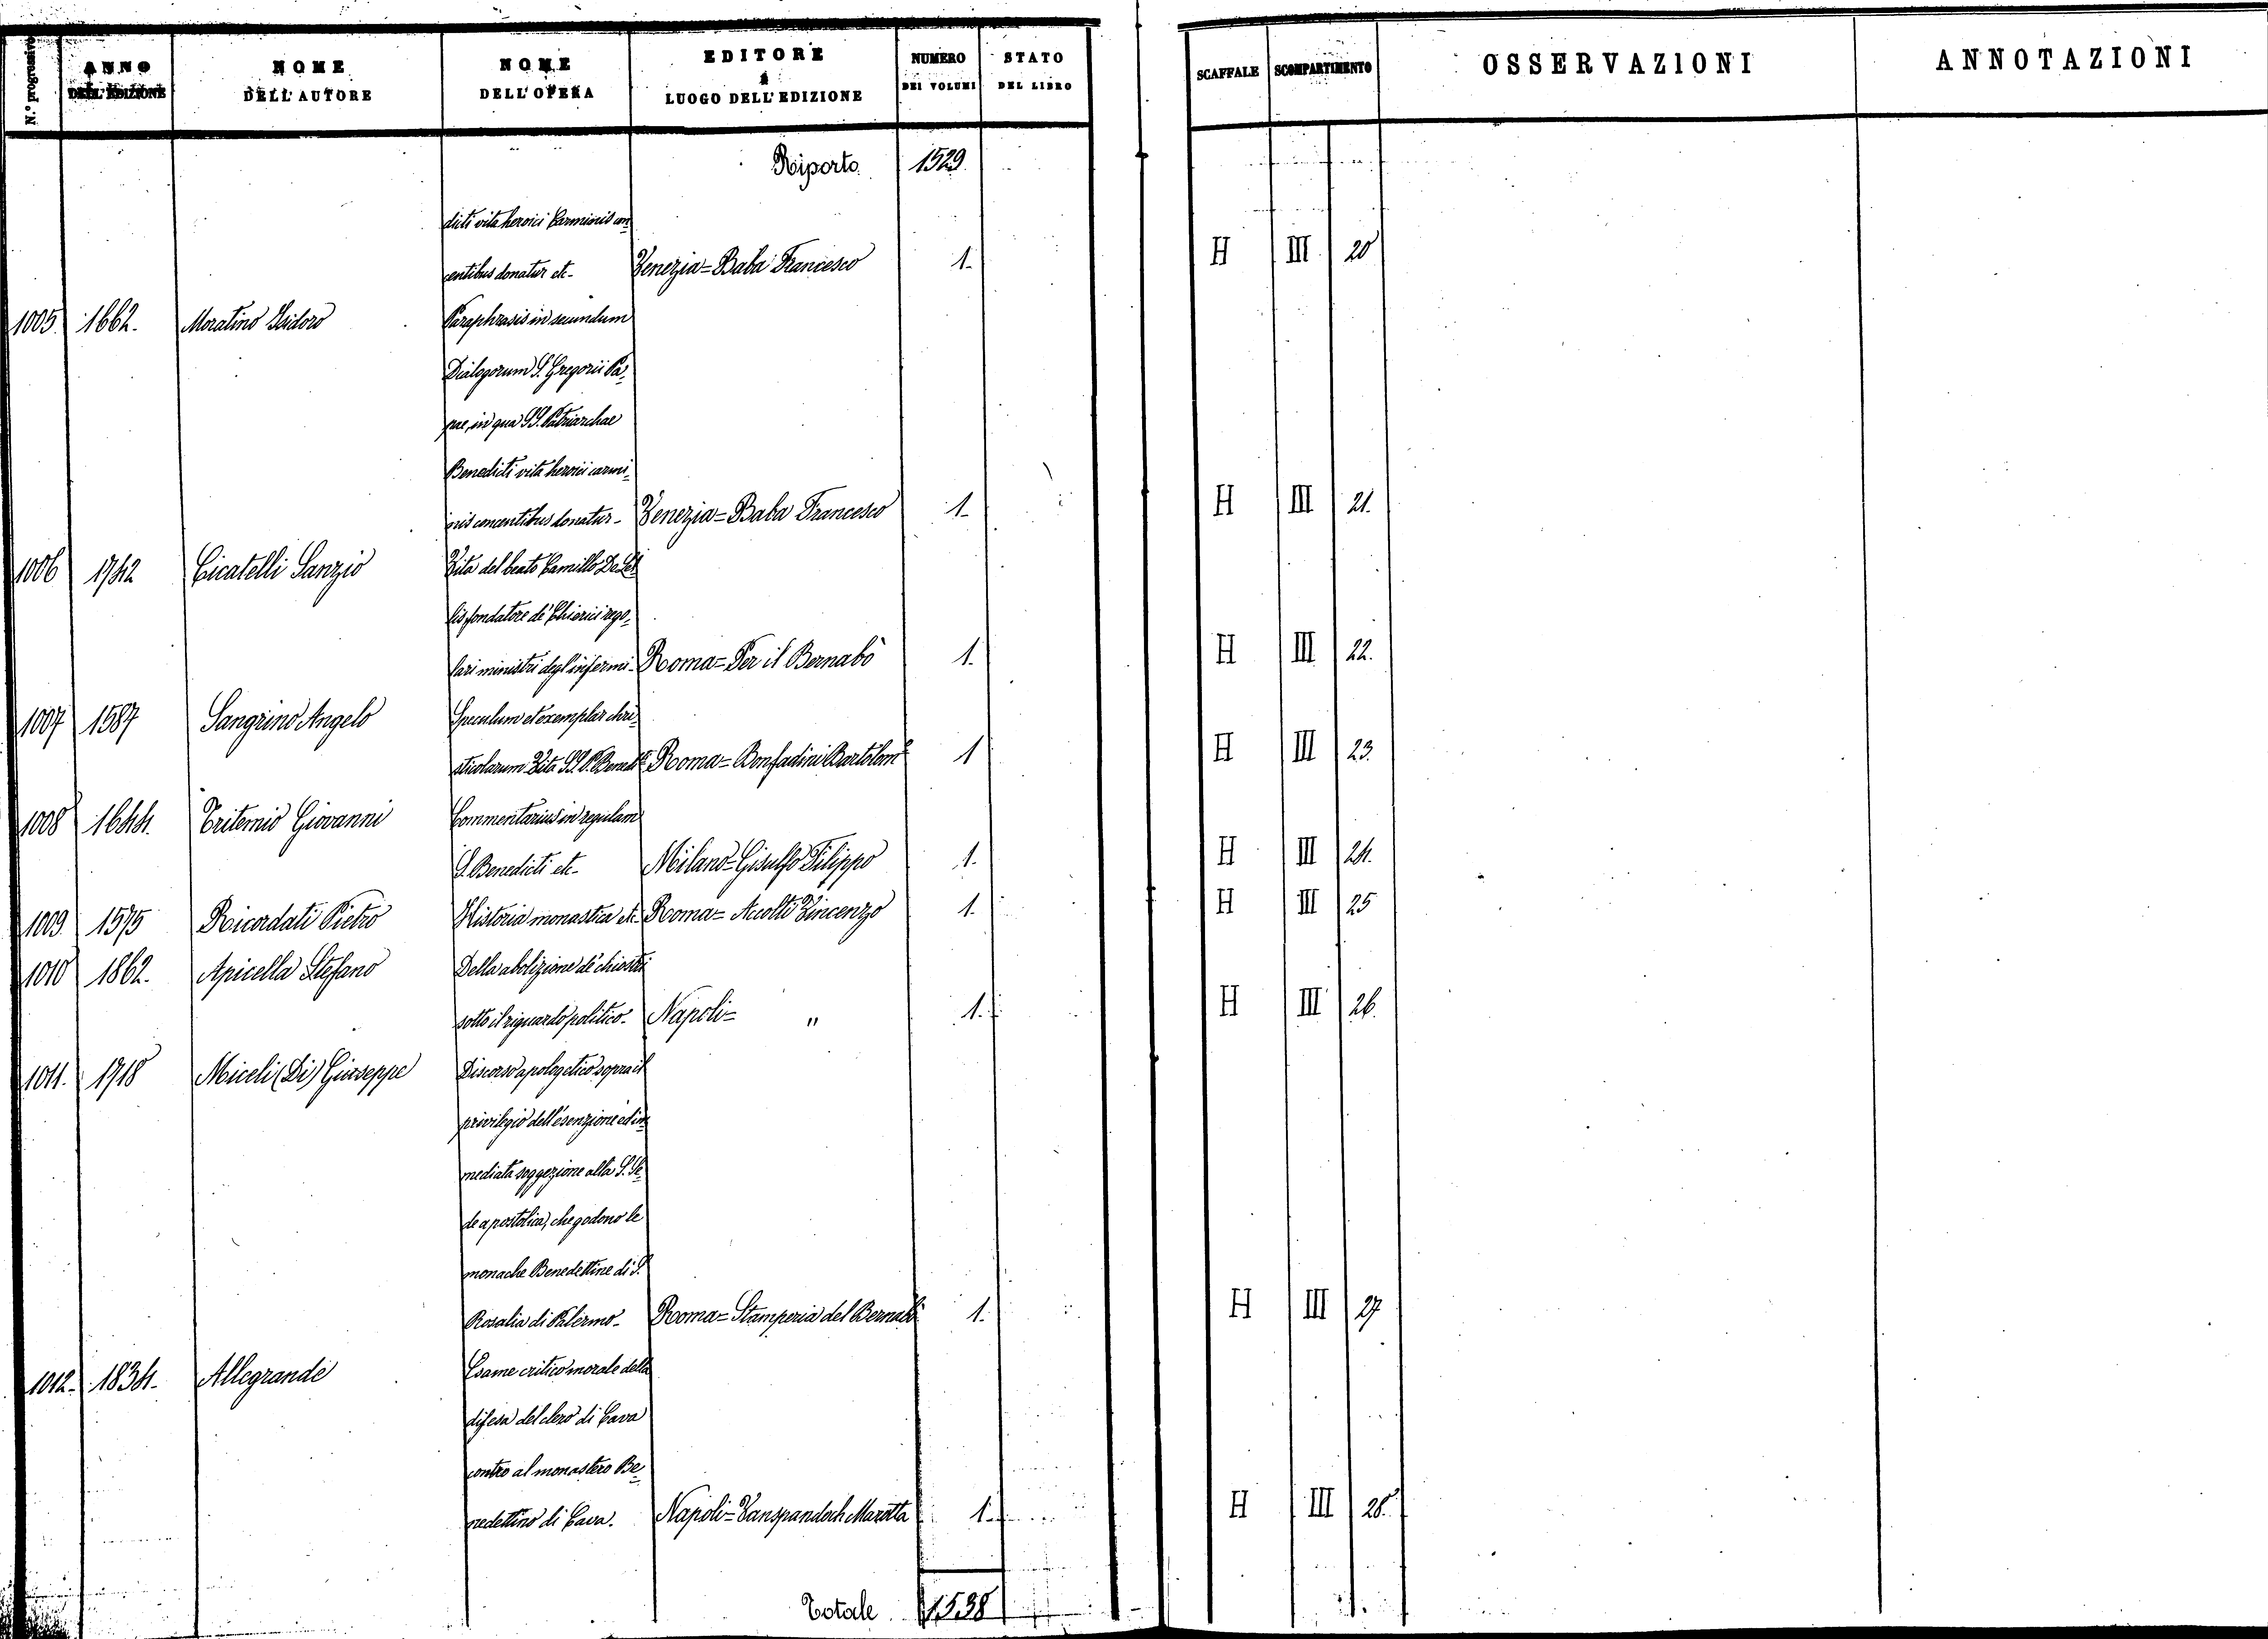 N.º progressivo
ANNO DELL'EDIZIONE
NOME DELL'AUTORE
NOME DELL'OPERA
EDITORE e LUOGO DELL'EDIZIONE
NUMERO DEI VOLUMI
STATO DEL LIBRO
SCAFFALE
SCOMPARTIMENTO
OSSERVAZIONI
ANNOTAZIONI
Riporto 1529
dicti vita heroici Carminis con=
centibus donatur etc- Venezia=Baba Francesco 1. H III 20
1005 1662. Moratino Isidoro Paraphrasis in secundum
Dialogorum S. Gregorii Pa=
pae, in qua SS. Patriarchae
Benedicti vita heroici carmi=
nis concentibus donatur- Venezia=Baba Francesco 1. H III 21.
1006 1742 Cicatelli Sanzio Vita del beato Camillo De Lel
lis, fondatore de' Chierici rego=
lari ministri degl'infermi- Roma=Per il Bernabò 1. H III 22.
1007 1587 Sangrino Angelo Speculum et exemplar chri=
sticolarum Vita SS. P. Bened.ti Roma=Bonfadini Bartolom.o 1 H III 23.
1008 1644. Tritemio Giovanni Commentarius in regulam
S. Benedicti etc- Milano=Gisulfo Filippo 1. H III 24.
1009 1575 Ricordati Pietro Historia monastica etc- Roma=Accolti Vincenzo 1. H III 25
1010 1862. Apicella Stefano Della abolizione de' chiostri
sotto il riguardo politico- Napoli= " 1. H III 26.
1011. 1718 Miceli (Di) Giuseppe Discorso apologetico sopra il
privilegio dell'esenzione ed im=
mediata soggezione alla S. Se=
de apostolica, che godono le
monache Benedettine di S.
Rosalia di Palermo- Roma=Stamperia del Bernabò 1. H III 27
1012- 1834. Allegrande Esame critico morale della
difesa del clero di Cava
contro al monastero Be=
nedettino di Cava. Napoli=Vanspandoch Marotta 1. H III 28.
Totale 1538